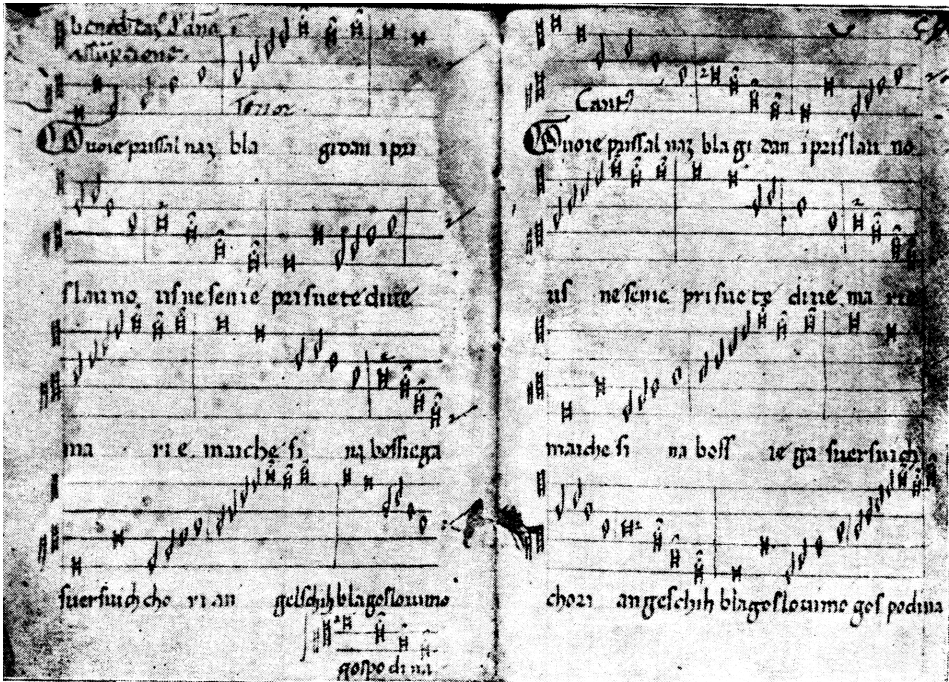 benedicaꝫ d'
assūpcione
Tenor
Tuoie prissal naz bla gidan i pri
slauno usnesenie prisuete diue
ma rie. maiche si na bossiega
suersuich cho ri an gelschih blagoslouimo
gospo di na
Cant9
Tuoie prissal naz bla gi dan i prislau no
us nesenie prisue te diue ma rie
maiche si na boss ie ga suersuich
chori angelschih blagoslouimo gos podina